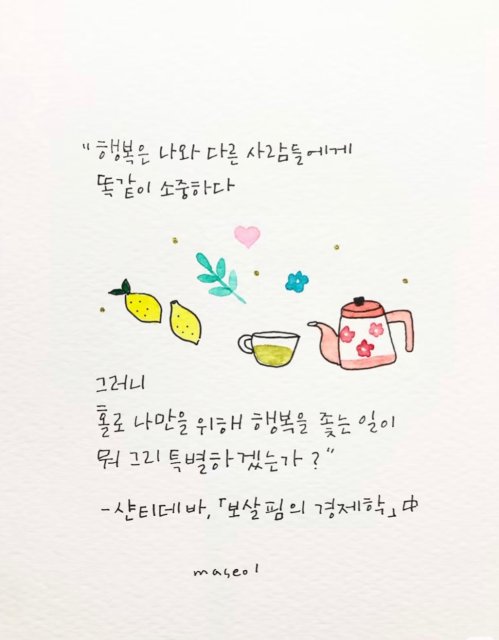 "행복은 나와 다른 사람들에게
똑같이 소중하다
그러니
홀로 나만을 위해 행복을 좇는 일이
뭐 그리 특별하겠는가?"
-샨티데바,「보살핌의 경제학」中
maseol